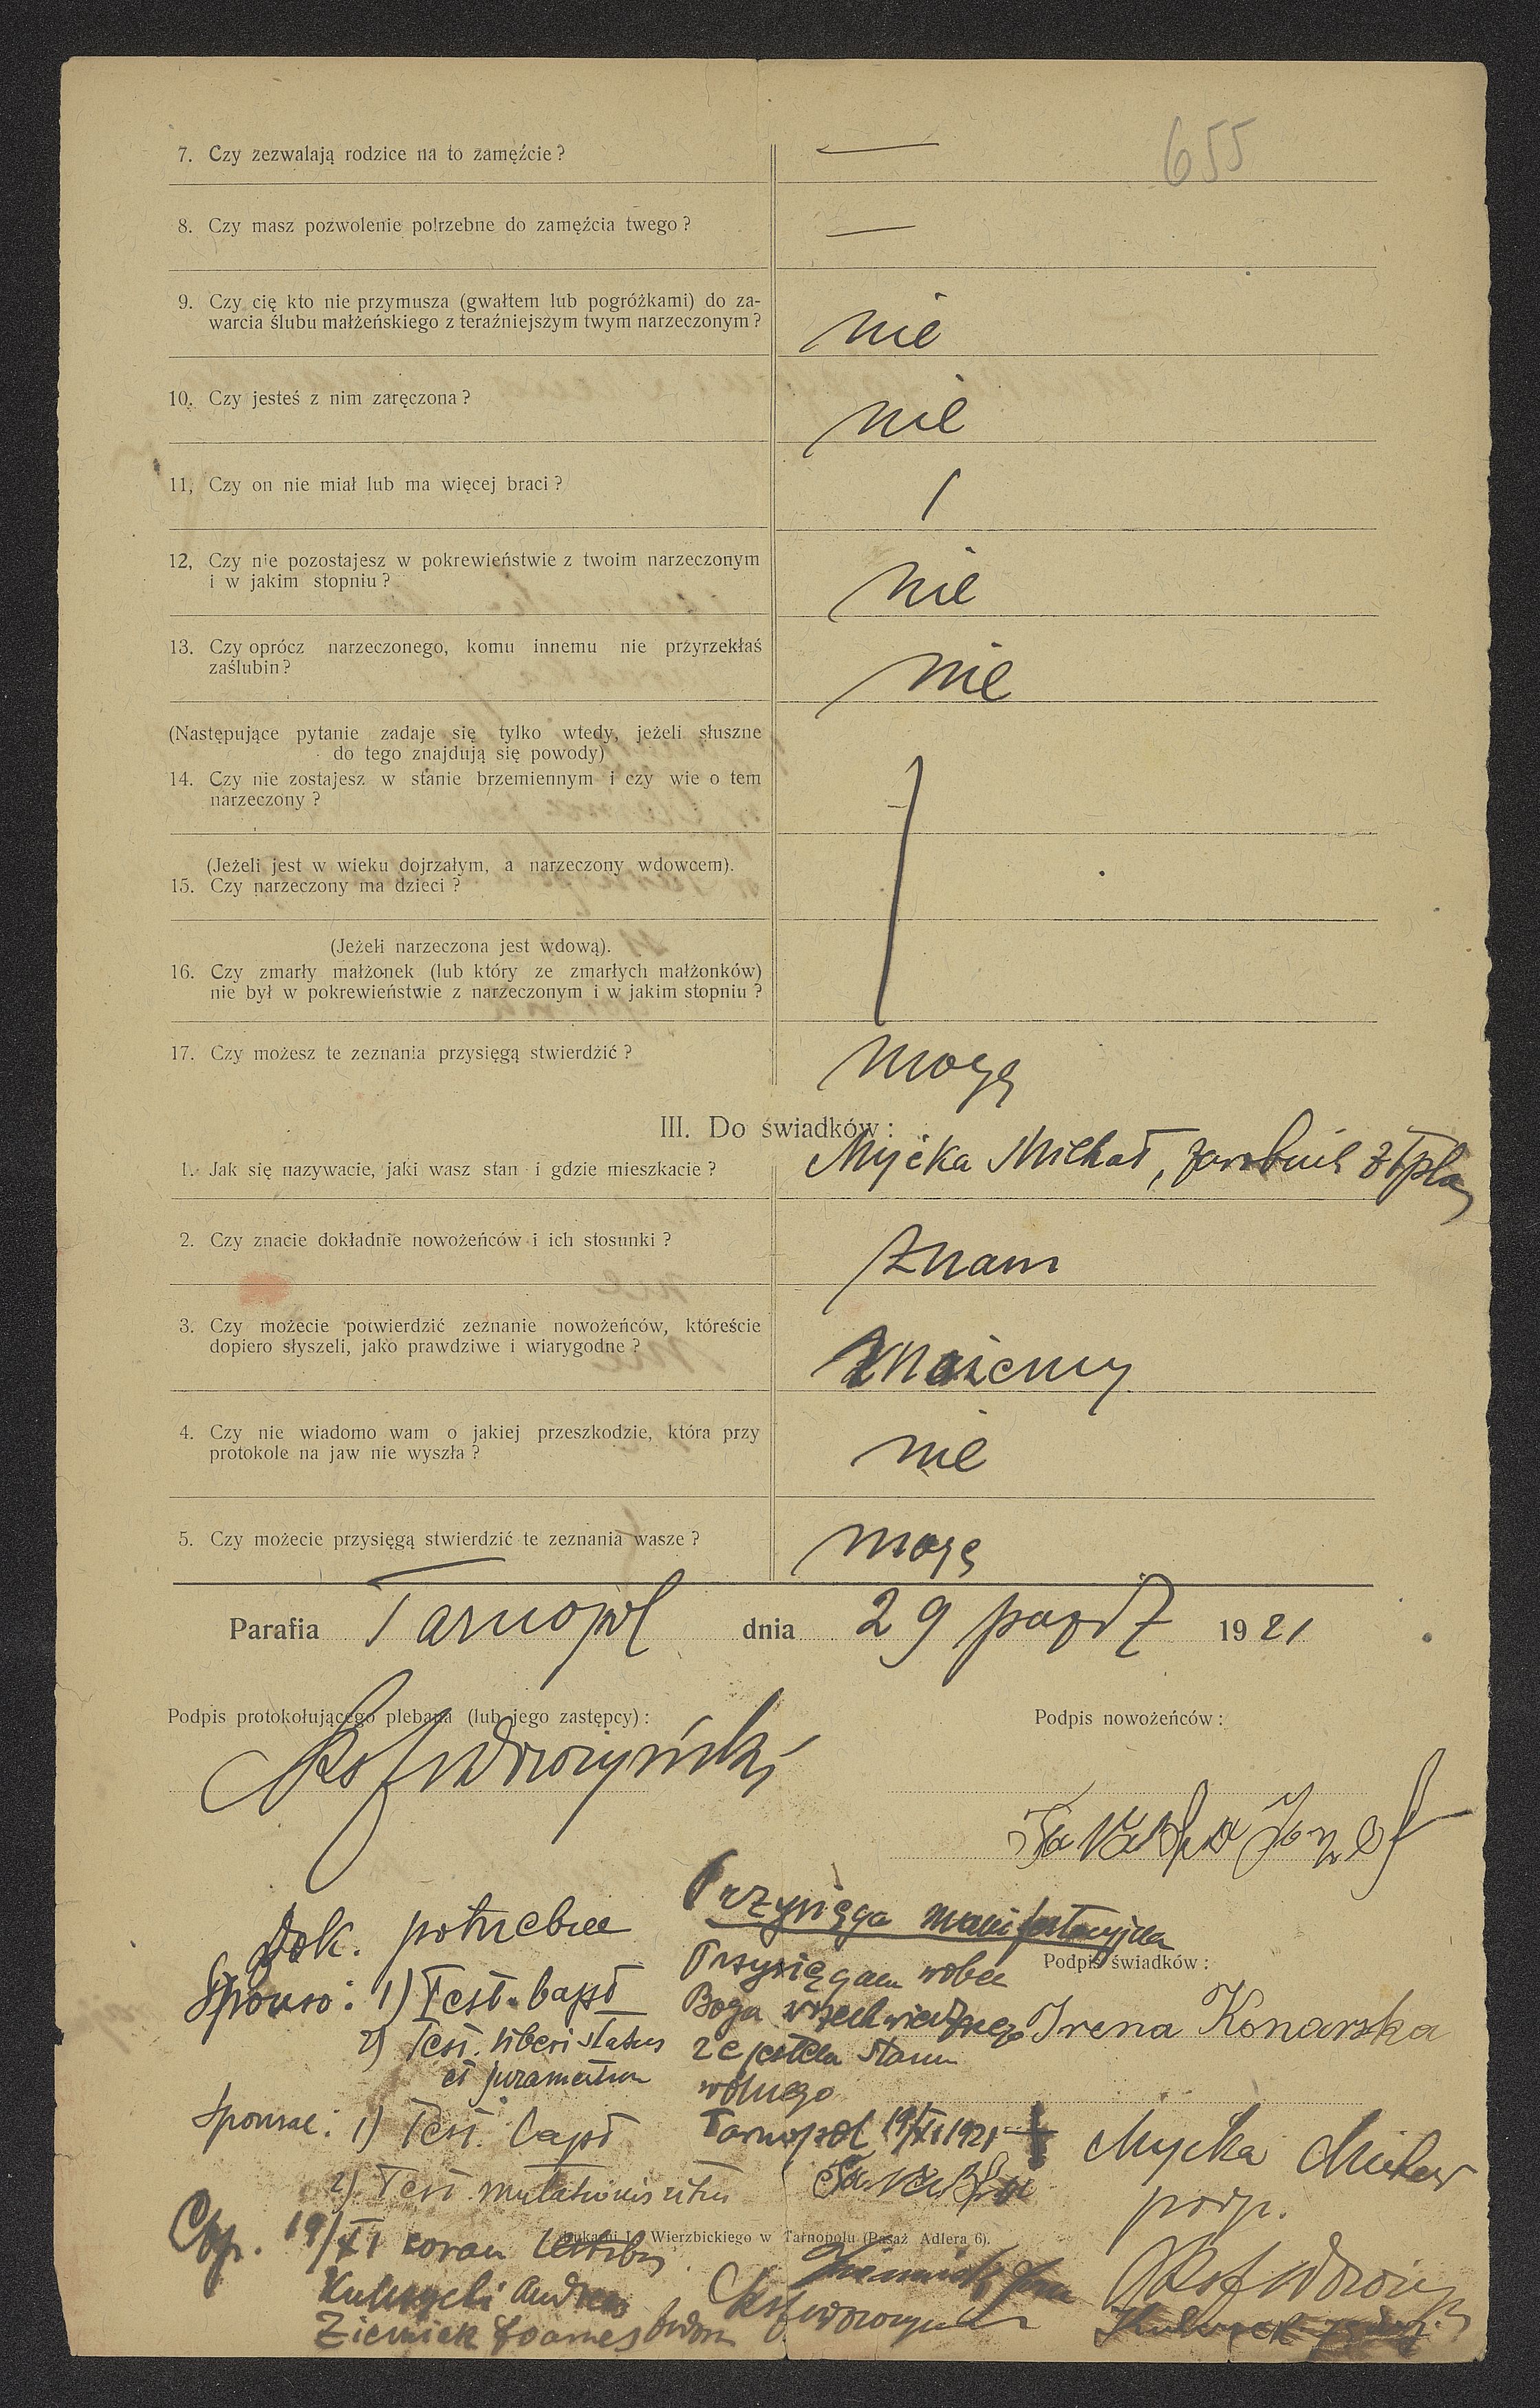 655
7. Czy zezwalają rodzice na to zamęźcie? —
8. Czy masz pozwolenie potrzebne do zamęźcia twego? —
9. Czy cię kto nie przymusza (gwałtem lub pogróżkami) do za-
warcia ślubu małżeńskiego z teraźniejszym twym narzeczonym? nie
10. Czy jesteś z nim zaręczona? nie
11, Czy on nie miał lub ma więcej braci? /
12, Czy nie pozostajesz w pokrewieństwie z twoim narzeczonym
i w jakim stopniu? nie
13. Czy oprócz narzeczonego, komu innemu nie przyrzekłaś
zaślubin? nie
(Następujące pytanie zadaje się tylko wtedy, jeżeli słuszne
do tego znajdują się powody)
14. Czy nie zostajesz w stanie brzemiennym i czy wie o tem
narzeczony?
(Jeżeli jest w wieku dojrzałym, a narzeczony wdowcem).
15. Czy narzeczony ma dzieci?
(Jeżeli narzeczona jest wdową).
16. Czy zmarły małżonek (lub który ze zmarłych małżonków)
nie był w pokrewieństwie z narzeczonym i w jakim stopniu?
17. Czy możesz te zeznania przysięgą stwierdzić? mogę
III. Do świadków:
1. Jak się nazywacie, jaki wasz stan i gdzie mieszkacie? Myćka Michał, zarobnik
2. Czy znacie dokładnie nowożeńców i ich stosunki? znam
3. Czy możecie potwierdzić zeznanie nowożeńców, któreście
dopiero słyszeli, jako prawdziwe i wiarygodne? możemy
4. Czy nie wiadomo wam o jakiej przeszkodzie, która przy
protokole na jaw nie wyszła? nie
5. Czy możecie przysięgą stwierdzić te zeznania wasze? mogę
Parafia Tarnopol dnia 29 paźdz 1921
Podpis protokołującego plebana (lub jego zastępcy):
Podpis nowożeńców:
Józef
Dok. potrzebne
Sponso: 1) Test. bapt
2) Test. liberi status
et juramentum
Sponsae: 1) Test. bapt
2) Test. mutationis ritus
Cop. 19/XI coram testibus
Andreas
Ziemiak Joannes
Przysięga manifestacyjna
Przysięgam wobec
Boga wszechwiedzącego
że jestem stanu
wolnego
Tarnopol 19/XI 1921
Podpis świadków:
Irena Konarska
Myćka Michał
podp.
Drukarni L. Wierzbickiego w Tarnopolu (Pasaż Adlera 6).